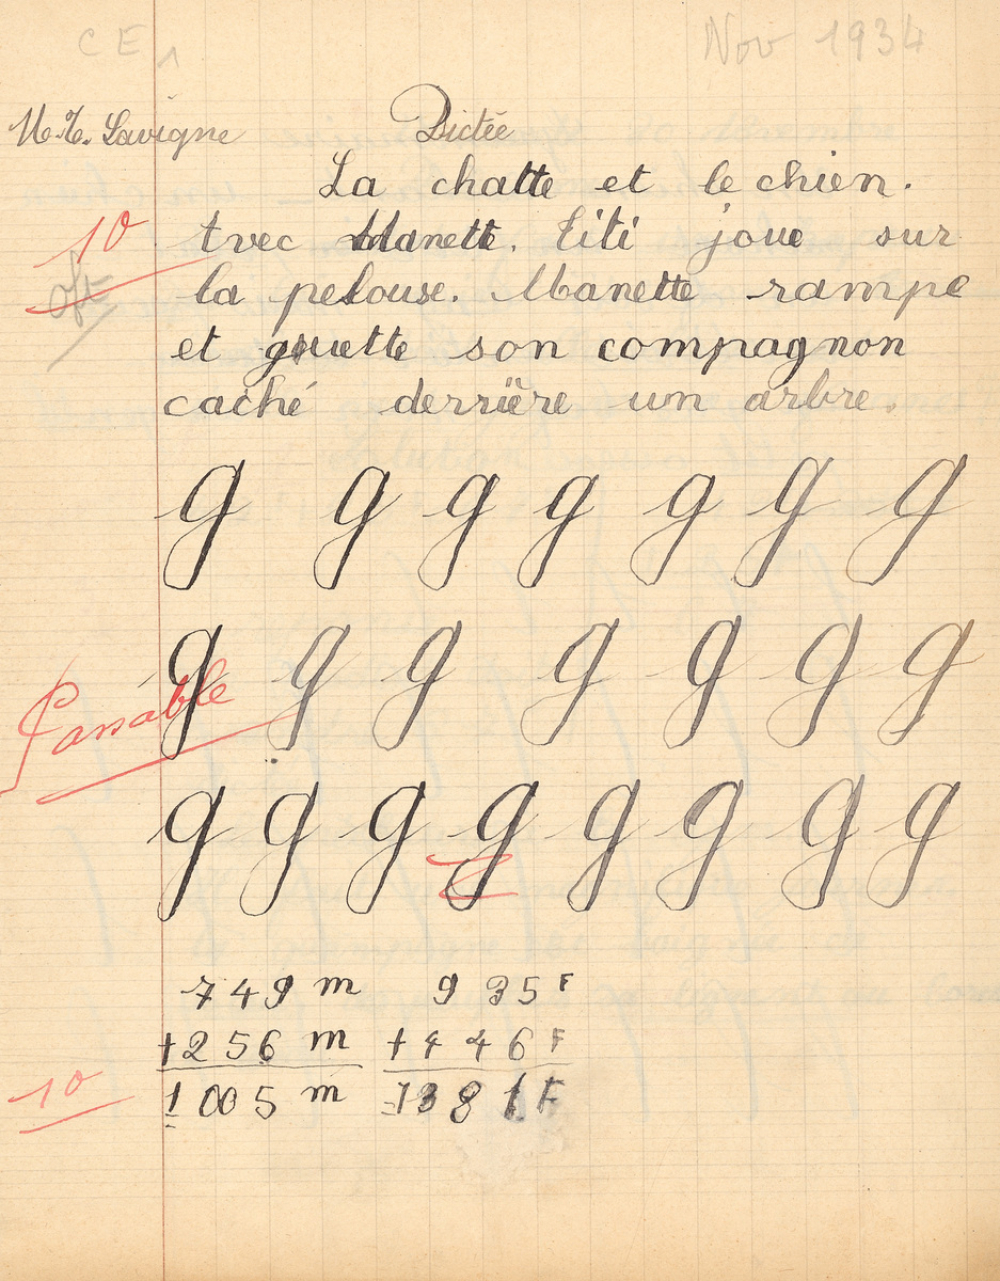 CE1 Nov 1934
M.T. Lavigne Dictée
La chatte et le chien.
10 Avec Manette, Titi joue sur
la pelouse. Manette rampe
et guette son compagnon
caché derrière un arbre.
g g g g g g g
g g g g g g g
Passable
g g g g g g g g
749 m 935 F
+256 m +446 F
10 1005 m 1381 F